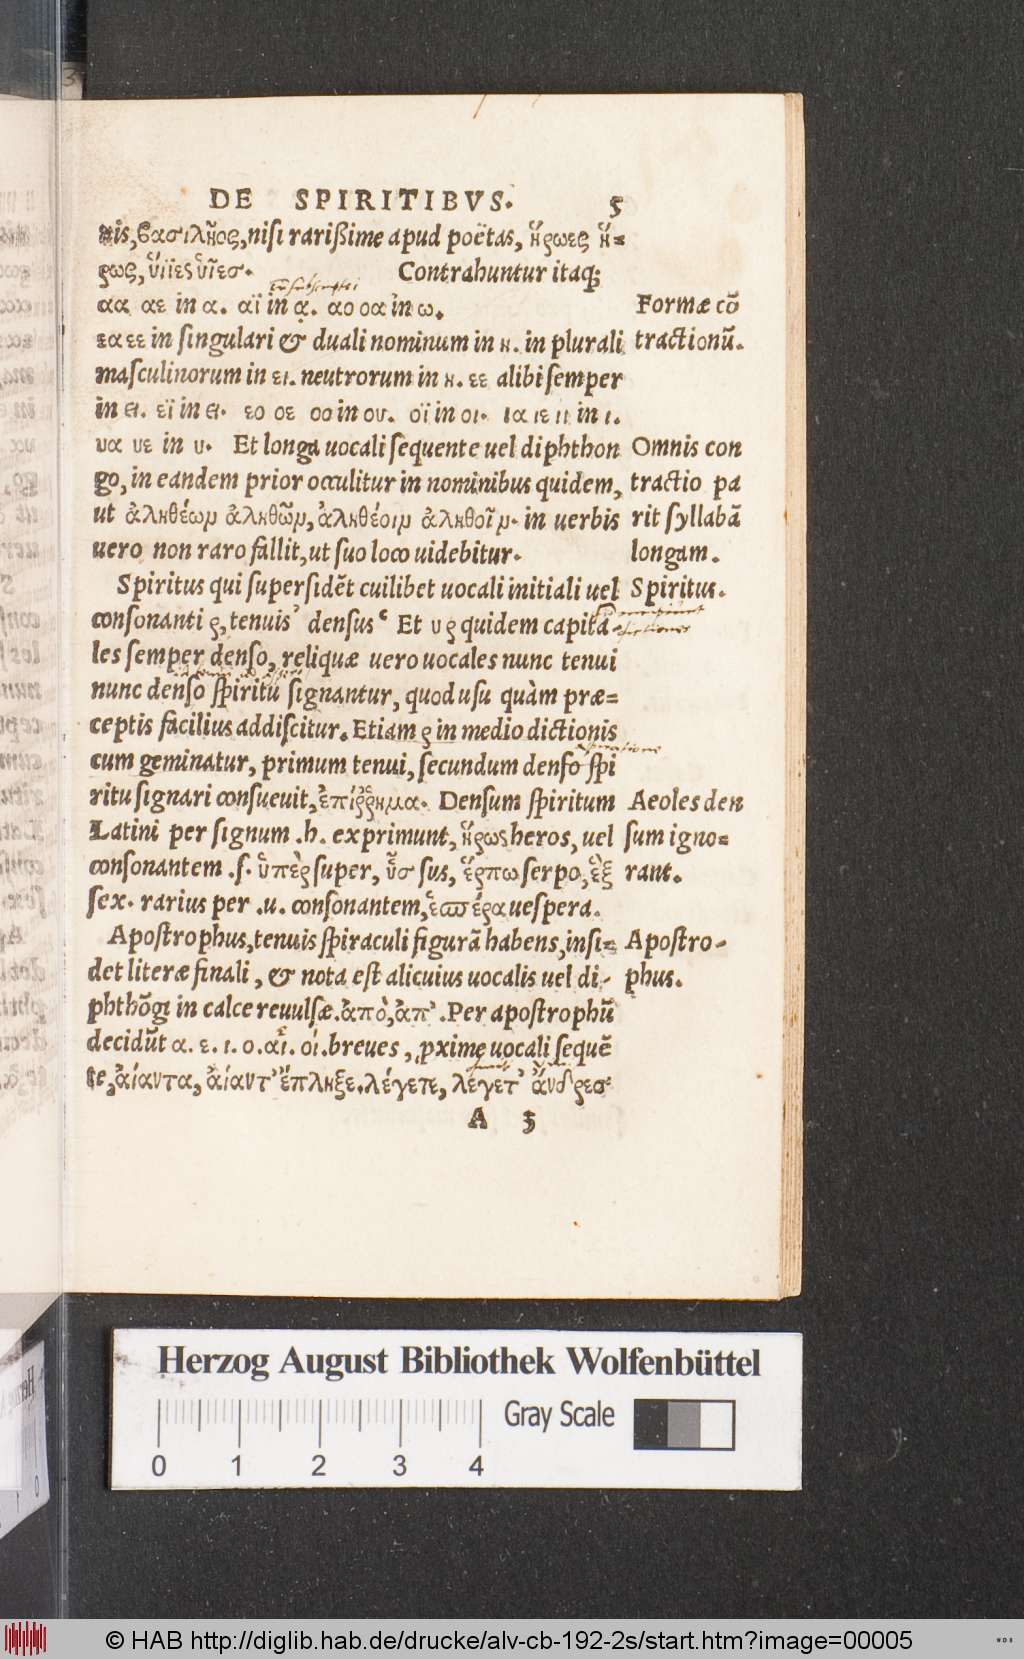 DE SPIRITIBVS. 5
nis, βασιλῆος, nisi rarißime apud poëtas, ἥρωες ἥ=
ρως, ὕϊες ὑῖεσ. Contrahuntur itaq;
αα αε in α. αϊ in ᾳ. αο οα in ω.
Formæ cõ
εα εε in singulari & duali nominum in η. in plurali
tractionũ.
masculinorum in ει. neutrorum in η. εε alibi semper
in ει. εϊ in ει. εο οε οο in ου. οϊ in οι. ια ιε ιι in ι.
υα υε in υ. Et longa uocali sequente uel diphthon
Omnis con
go, in eandem prior occulitur in nominibus quidem,
tractio pa
ut ἀληθέων ἀληθῶν, ἀληθέοιν ἀληθοῖν. in uerbis
rit syllabã
uero non raro fallit, ut suo loco uidebitur.
longam.
Spiritus qui supersidẽt cuilibet uocali initiali uel
Spiritus.
consonanti ρ, tenuis ̓ densus ̔ Et υ ρ quidem capita
les semper denso, reliquæ uero uocales nunc tenui
nunc denso spiritu signantur, quod usu quàm præ=
ceptis facilius addiscitur. Etiam ρ in medio dictionis
cum geminatur, primum tenui, secundum denso spi
ritu signari consueuit, ἐπίῤῥημα. Densum spiritum
Aeoles den
Latini per signum .h. exprimunt, ἥρως heros, uel
sum igno=
consonantem .s. ὑπὲρ super, ὗσ sus, ἕρπω serpo, ἓξ
rant.
sex. rarius per .u. consonantem, ἑσπέρα uespera.
Apostrophus, tenuis spiraculi figurã habens, insi=
Apostro-
det literæ finali, & nota est alicuius uocalis uel di-
phus.
phthõgi in calce reuulsæ. ἀπὸ, ἀπ'. Per apostrophũ
decidũt α. ε. ι. ο. αι. οι. breues, ꝓxime uocali sequẽ
te, αἴαντα, αἴαντ' ἔπληξε. λέγετε, λέγετ' ἄνδρεσ
A 3
Herzog August Bibliothek Wolfenbüttel
Gray Scale
0 1 2 3 4
© HAB http://diglib.hab.de/drucke/alv-cb-192-2s/start.htm?image=00005